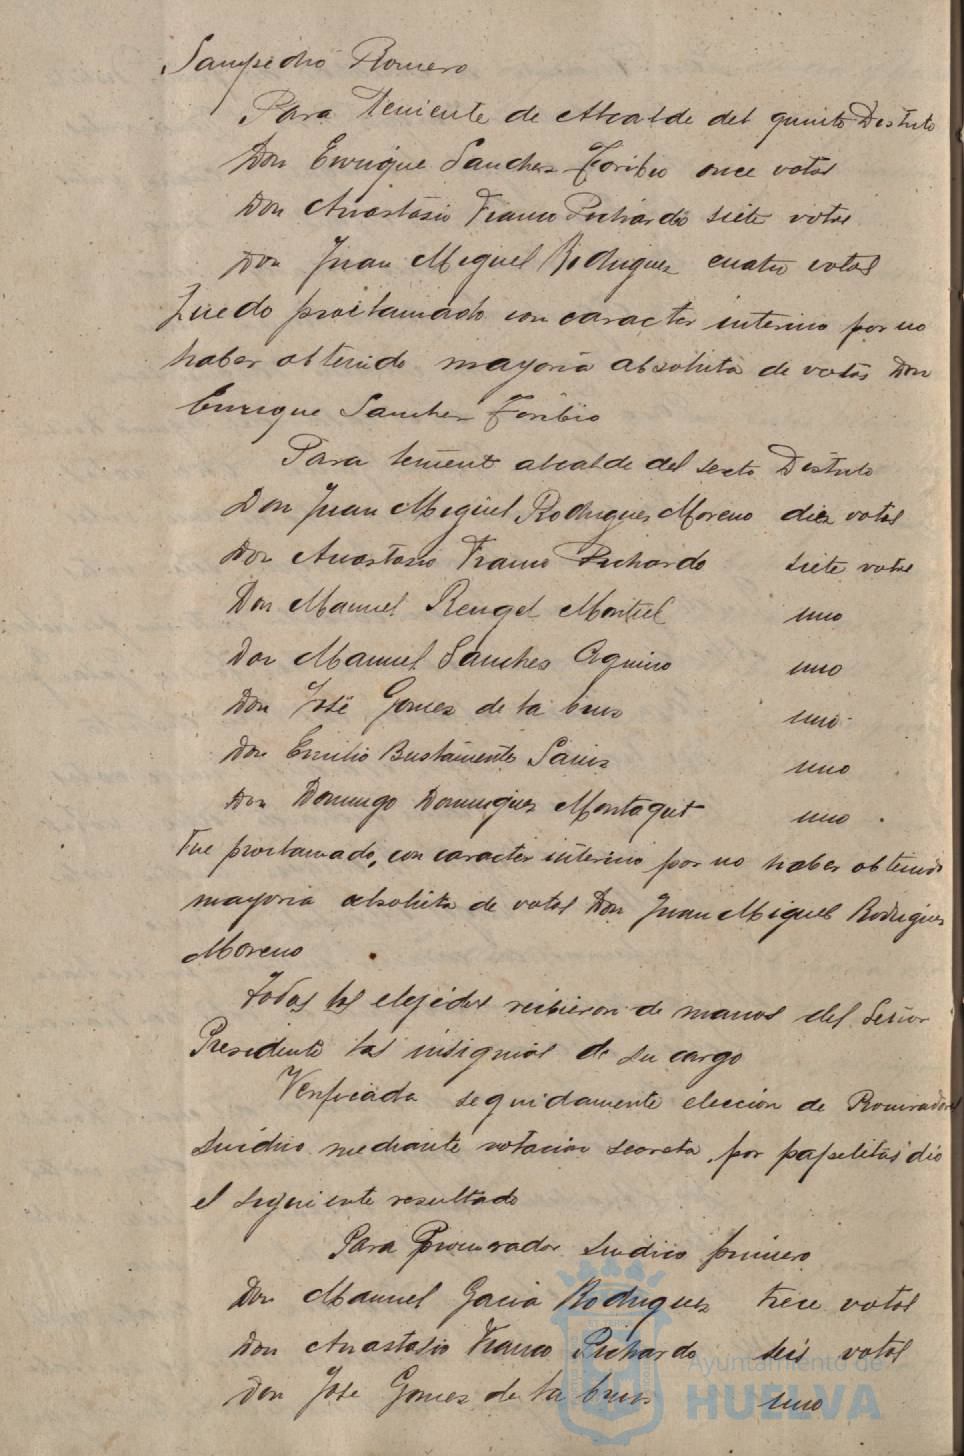 Sampedro Romero
Para teniente de Alcalde del quinto Distrito
Don Enrique Sanchez Toribio once votos
Don Anastasio Franco Pichardo siete votos
Don Juan Miguel Rodriguez cuatro votos
Quedo proclamado con caracter interino por no
haber obtenido mayoria absoluta de votos Don
Enrique Sanchez Toribio
Para tenient alcalde del sexto Distrito
Don Juan Miguel Rodriguez Moreno diez votos
Don Anastasio Franco Pichardo siete votos
Don Manuel Rengel Montiel uno
Don Manuel Sanches Aquino uno
Don José Gomez de la Cruz uno
Don Emilio Bustamente Sainz uno
Don Domingo Dominguez Montagut uno
Fue proclamado, con caracter interino por no haber obtenido
mayoria absoluta de votos Don Juan Miguel Rodriguez
Moreno
Todos los elejidos recibieron de manos del Señor
Presidente las insignias de su cargo
Verificada seguidamente eleccion de Procurador
Sindico mediante votacion secreta por papeletas dio
el siguiente resultado
Para Procurador Sindico primero
Don Manuel Garcia Rodriguez trece votos
Don Anastasio Franco Pichardo seis votos
Don Jose Gomez de la Cruz uno
Ayuntamiento de
HUELVA